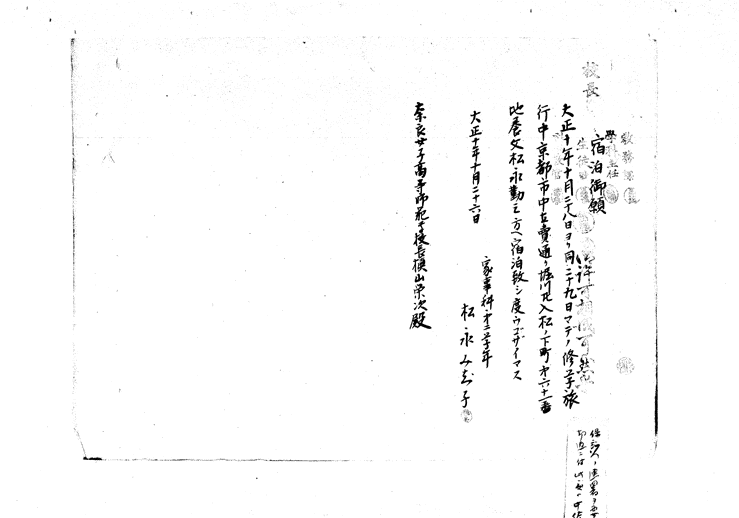 校長
教務
學科主任
生徒
宿泊御願
御許可相成可然
大正十年十月二十八日ヨリ同二十九日マデノ修学旅
行中京都市中立賣通リ堀川西入松ノ下町第六十一番
地養父松永勤之方ヘ宿泊致シ度ウゴザイマス
大正十年十月二十六日
家事科第三学年
松永み
子
奈良女子高等師範学校長槇山栄次殿
保証人ノ